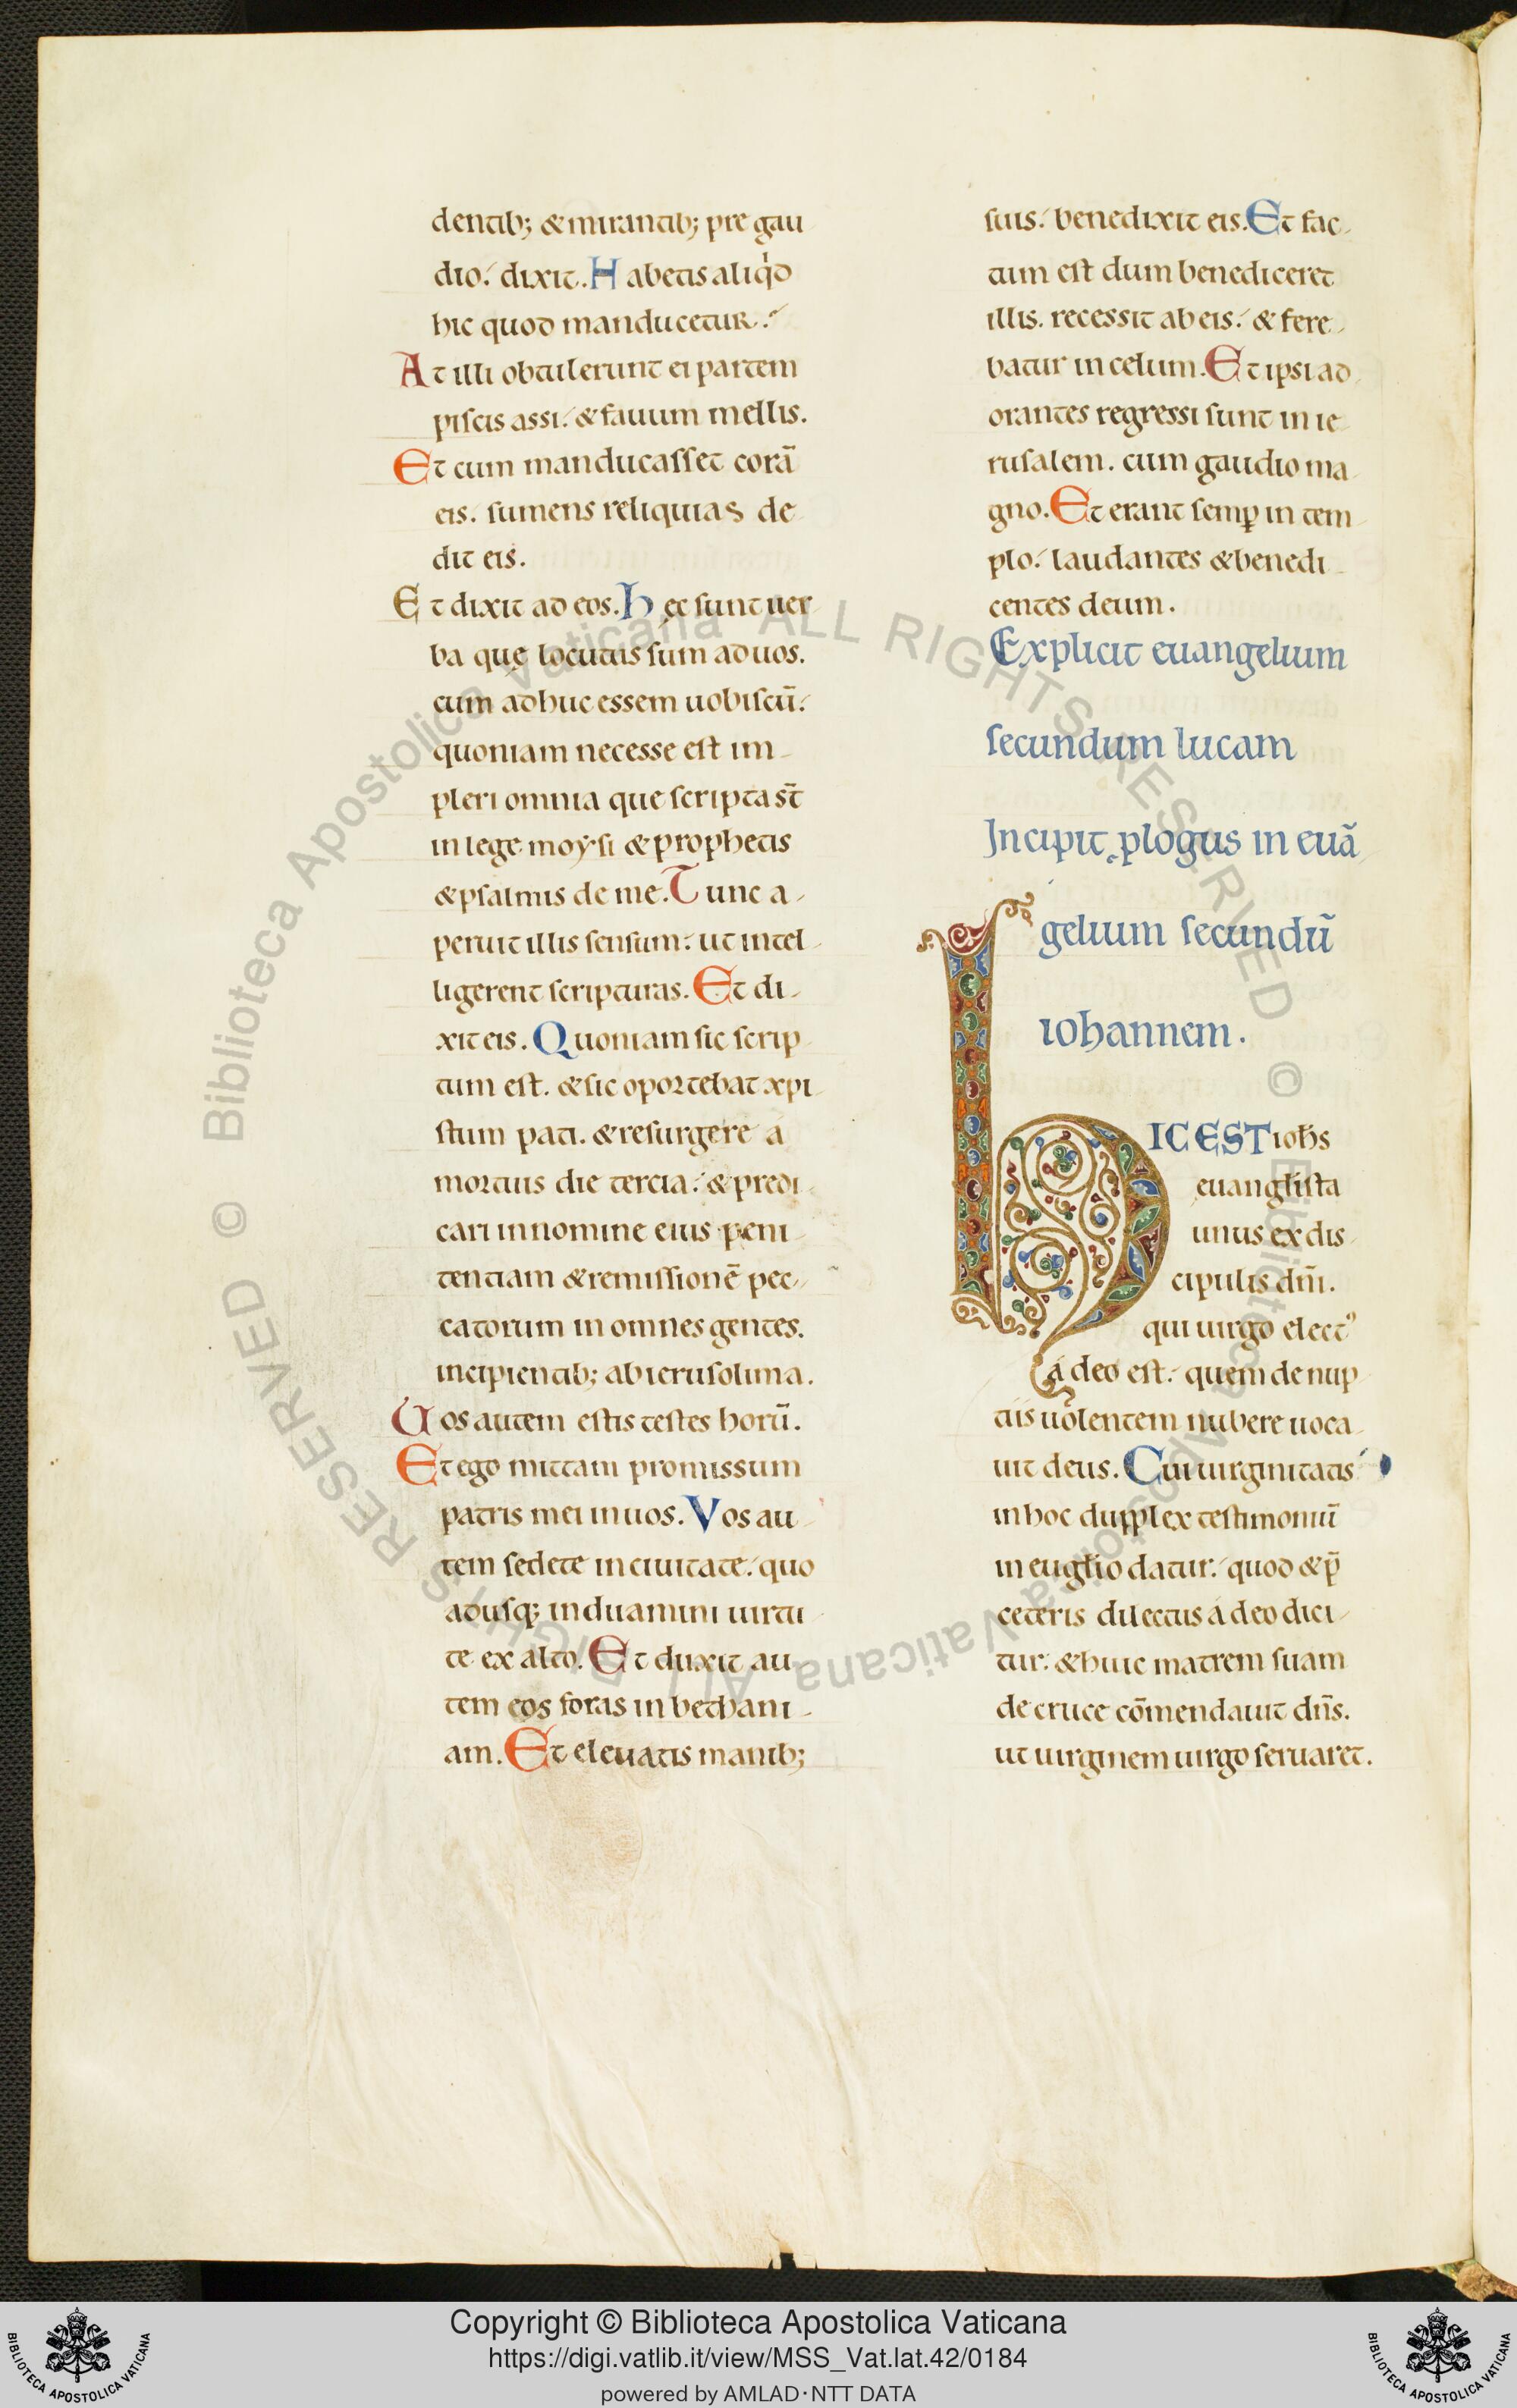 dentib; & mirantib; pre gau
dio. dixit. Habetis aliqd
hic quod manducetur.
At illi obtulerunt ei partem
piscis assi. & fauum mellis.
Et cum manducasset corā
eis. sumens reliquias de
dit eis.
Et dixit ad eos. Hęc sunt uer
ba quę locutus sum ad uos.
cum adhuc essem uobiscū.
quoniam necesse est im-
pleri omnia que scripta st̄
in lege moysi & prophetis
& psalmis de me. Tunc a-
peruit illis sensum. ut intel-
ligerent scripturas. Et di-
xit eis. Quoniam sic scrip
tum est. & sic oportebat xpi-
stum pati. & resurgere a
mortuis die tercia. & predi-
cari in nomine eius peni-
tentiam & remissionē pec-
catorum in omnes gentes.
incipientib; ab ierusolima.
Uos autem estis testes horū.
Et ego mittam promissum
patris mei in uos. Vos au-
tem sedete in ciuitate. quo
adusq; induamini uirtu-
te ex alto. Et duxit au
tem eos foras in bethani-
am. Et eleuatis manib;
suis. benedixit eis. Et fac-
tum est dum benediceret
illis. recessit ab eis. & fere-
batur in celum. Et ipsi ad
orantes regressi sunt in ie
rusalem. cum gaudio ma
gno. Et erant semꝑ in tem
plo. laudantes & benedi-
centes deum.
Explicit euangelium
secundum lucam
Incipit ꝓlogus in euā
gelium secundū
iohannem.
HIC EST ioħs
euangłista
unus ex dis-
cipulis dm̄i.
qui uirgo elect᾽
á deo est. quem de nup
tiis uolentem nubere uoca
uit deus. Cui uirginitatis
in hoc dupplex testimoniū
in eugłio datur. quod & p̄
ceteris dilectus á deo dici-
tur. & huic matrem suam
de cruce cōmendauit dn̄s.
ut uirginem uirgo seruaret.
© Biblioteca Apostolica Vaticana ALL RIGHTS RESERVED
© Biblioteca Apostolica Vaticana ALL RIGHTS RESERVED
Copyright © Biblioteca Apostolica Vaticana
https://digi.vatlib.it/view/MSS_Vat.lat.42/0184
powered by AMLAD·NTT DATA
BIBLIOTECA APOSTOLICA VATICANA
BIBLIOTECA APOSTOLICA VATICANA